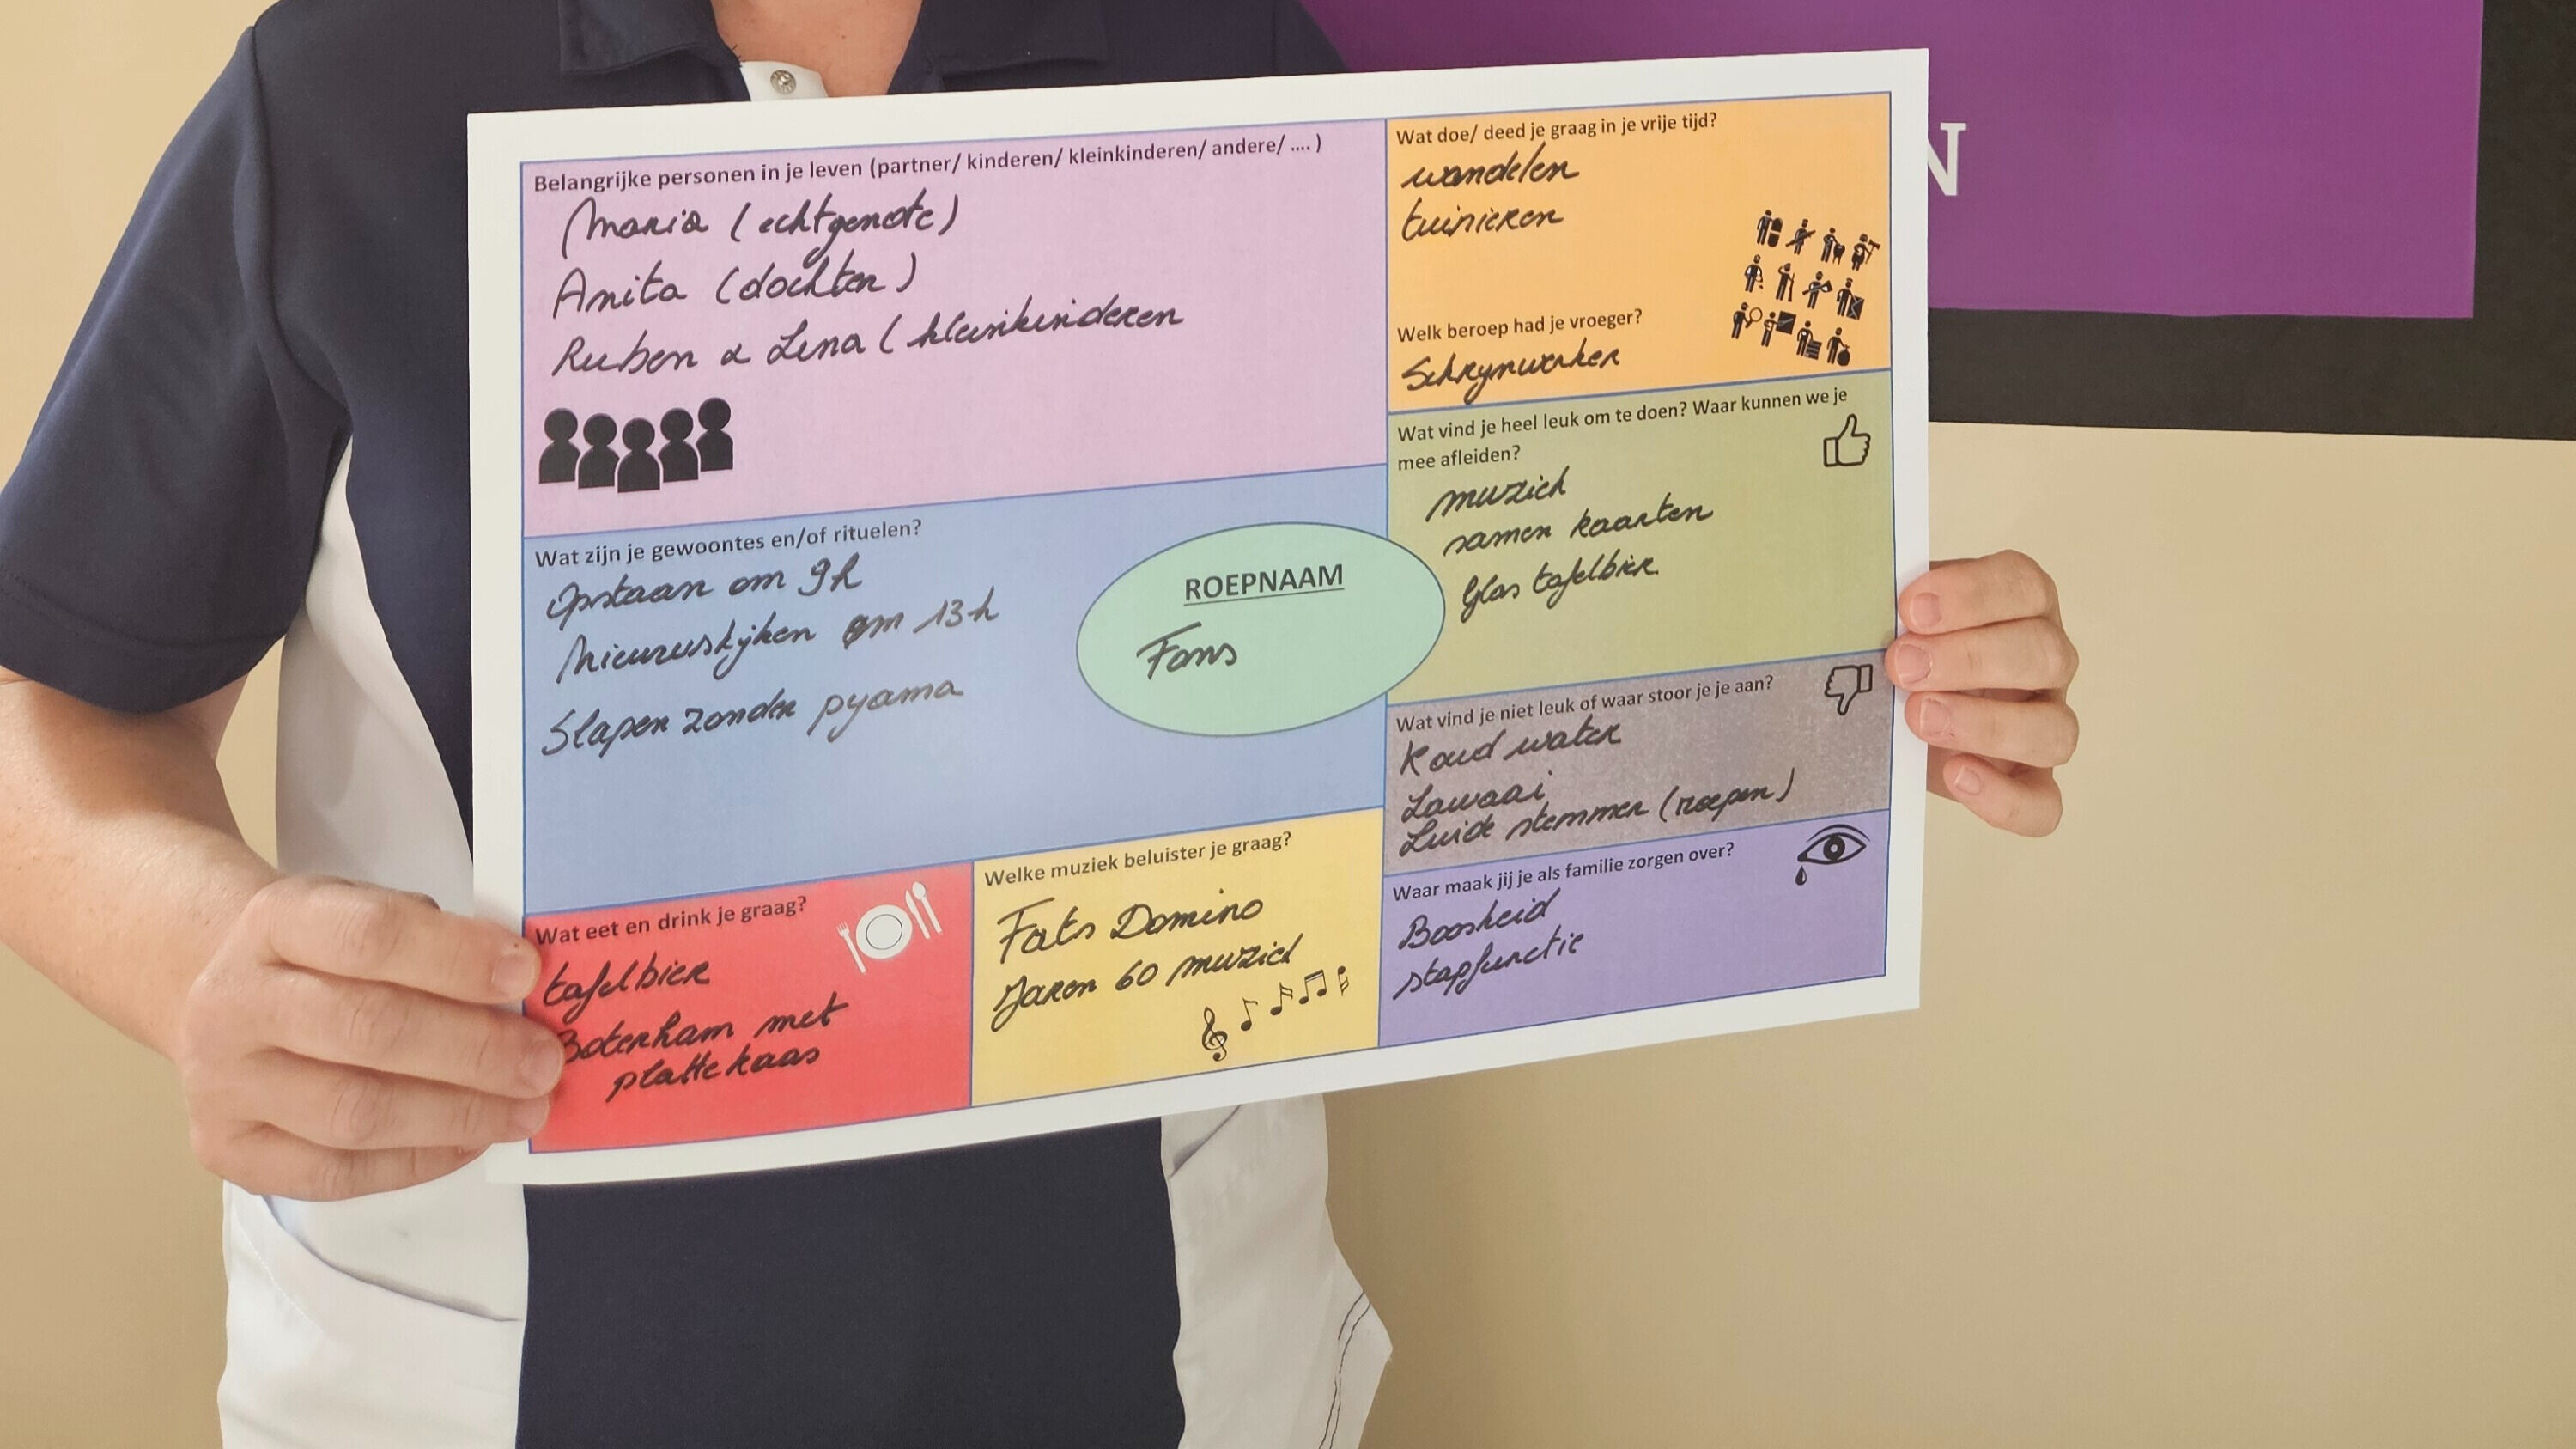 Belangrijke personen in je leven (partner/ kinderen/ kleinkinderen/ andere/ .... )
Maria (echtgenote)
Anita (dochter)
Ruben & Lena (kleinkinderen
Wat doe/ deed je graag in je vrije tijd?
wandelen
tuinieren
Welk beroep had je vroeger?
Schrynwerker
Wat vind je heel leuk om te doen? Waar kunnen we je
mee afleiden?
muziek
samen kaarten
Glas tafelbier
Wat zijn je gewoontes en/of rituelen?
Opstaan om 9h
Nieuwskijken om 13h
Slapen zonder pyama
ROEPNAAM
Fons
Wat vind je niet leuk of waar stoor je je aan?
Koud water
Lawaai
Luide stemmen (roepen)
Wat eet en drink je graag?
tafelbier
Boterham met
plattekaas
Welke muziek beluister je graag?
Fats Domino
Jaren 60 muziek
Waar maak jij je als familie zorgen over?
Boosheid
stapfunctie
N